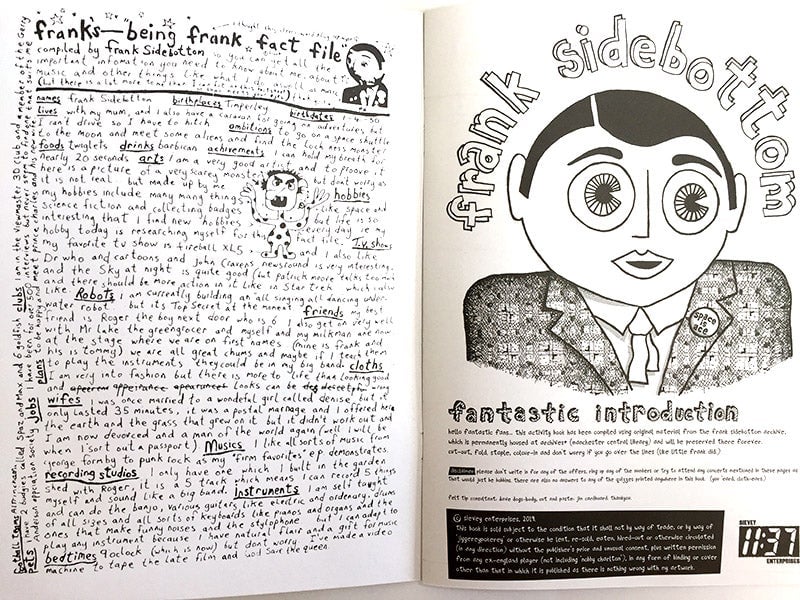 frank's—being frank fact file
compiled by frank Sidebottom so you can get all the
important infomation you need to know about me, about
music and other things like what
names frank Sidebottom birthplaces Timperley birthdates
lives with my mum, and I also have a caravan for going on adventures, but
I can't drive so I have to hitch ambitions to go on a space shuttle
to the moon and meet some aliens and find the loch ness monster
foods twiglets drinks barbican achievements I can hold my breath for
nearly 20 seconds arts I am a very good artist and to proove it
here is a picture of a very scarey monster but dont worry as
it is not real but made up by me hobbies
my hobbies include many many things like space and
science fiction and collecting badges but life is so
interesting that I find new hobbies every day ie my
hobby today is researching myself for this fact file. T.V. shows
my favorite tv show is fireball XL5 and I also like
Dr who and cartoons and John Cravens newsround is very interesting
and the Sky at night is quite good (but patrick moore talks too much
and there should be more action in it like in Star trek which I also
like Robots I am currently building an all singing all dancing under-
water robot but its Top Secret at the moment friends my best
friend is Roger the boy next door who is 6 I also get on very well
with Mr Lake the greengrocer and myself and my milkman are now
at the stage where we are on first names (mine is frank and
his is Tommy) we are all great chums and maybe if I teach them
to play the instruments they could be in my big band. cloths
I am very into fashion but there is more to life than looking good
and looks can be
wifes I was once married to a wondeful girl called denise, but it
only lasted 35 minutes, it was a postal marriage and I offered her
the earth and the grass that grew on it but it didn't work out and
I am now devorced and a man of the world again (well I will be
when I sort out a passport) Musics I like all sorts of music from
george formby to punk rock as my "firm favorites" ep demonstrates.
recording studios I only have one which I built in the garden
shed with Roger, it is a 5 track which means I can record 5 things
myself and sound like a big band. Instruments I am self taught
and can do the banjo, various guitars like electric and ordenary, drums
of all sizes and all sorts of keyboards like pianos and organs and
ones that make funny noises and the stylophone but I can adapt to
play any instrument because I have natural flair and a gift for music
bedtimes 9oclock (which is now) but dont worry I've made a video
machine to tape the late film and God Save the queen.
football teams
pets I have 2 budgies called
clubs I am in the viewmaster 3D club and a member of the Gerry
Anderson appreciation society. Jobs
plans to be happy and meet prince charles and his new wife
frank sidebottom
space is ace
fantastic introduction
hello fantastic fans... this activity book has been compiled using original material from the frank sidebottom archive,
which is permanently housed at archives+ (manchester central library) and will be preserved there forever.
cut-out, fold, staple, colour-in and don't worry if you go over the lines (like little frank did.)
disclaimer: please don't write in for any of the offers, ring any of the numbers or try to attend any concerts mentioned in these pages as
that would just be bobbins. there are also no answers to any of the quizzes printed anywhere in this book.
felt tip consultant: katie dogs-body, cut and paste: jim cardboard. thankyou.
© sievey enterprises, 2019.
This book is sold subject to the condition that it shall not by way of trade, or by way of
or otherwise be lent, re-sold, eaten, hired-out or otherwise circulated
(in any direction) without the publisher's price and unusual consent, plus written permission
from any ex-england player (not including 'nobby charlton'), in any form of binding or cover
other than that in which it is published as there is nothing wrong with my artwork.
SIEVEY
11:37
ENTERPRISES